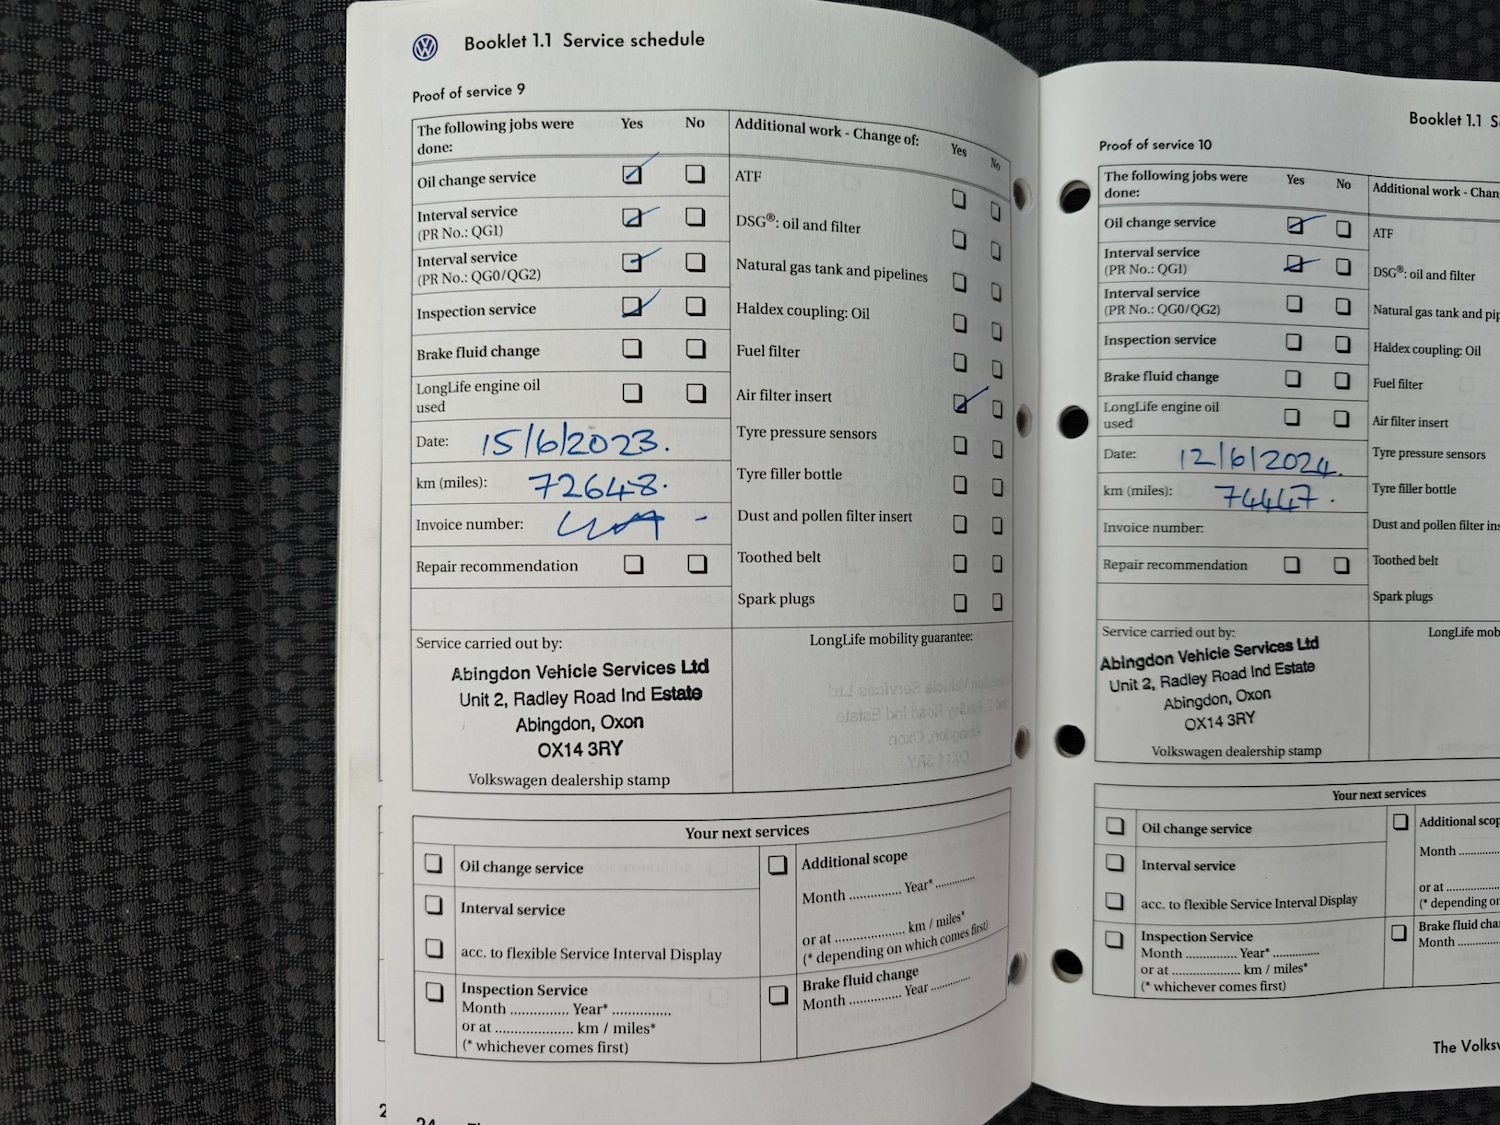 Booklet 1.1 Service schedule
Proof of service 9
The following jobs were done:
Yes No
Additional work - Change of:
Yes No
Oil change service
Interval service
(PR No.: QG1)
Interval service
(PR No.: QG0/QG2)
Inspection service
Brake fluid change
LongLife engine oil
used
Date: 15/6/2023.
km (miles): 72648.
Invoice number:
Repair recommendation
ATF
DSG®: oil and filter
Natural gas tank and pipelines
Haldex coupling: Oil
Fuel filter
Air filter insert
Tyre pressure sensors
Tyre filler bottle
Dust and pollen filter insert
Toothed belt
Spark plugs
Service carried out by:
Abingdon Vehicle Services Ltd
Unit 2, Radley Road Ind Estate
Abingdon, Oxon
OX14 3RY
Volkswagen dealership stamp
LongLife mobility guarantee:
Your next services
Oil change service
Interval service
acc. to flexible Service Interval Display
Inspection Service
Month ............... Year* ...............
or at .................... km / miles*
(* whichever comes first)
Additional scope
Month ............. Year* .............
or at .................. km / miles*
(* depending on which comes first)
Brake fluid change
Month ............. Year .............
24
Booklet 1.1
Proof of service 10
The following jobs were
done:
Yes No
Oil change service
Interval service
(PR No.: QG1)
Interval service
(PR No.: QG0/QG2)
Inspection service
Brake fluid change
LongLife engine oil
used
Date: 12/6/2024.
km (miles): 74447.
Invoice number:
Repair recommendation
Additional work - Chan
ATF
DSG®: oil and filter
Natural gas tank and pip
Haldex coupling: Oil
Fuel filter
Air filter insert
Tyre pressure sensors
Tyre filler bottle
Dust and pollen filter ins
Toothed belt
Spark plugs
Service carried out by:
Abingdon Vehicle Services Ltd
Unit 2, Radley Road Ind Estate
Abingdon, Oxon
OX14 3RY
Volkswagen dealership stamp
LongLife mob
Your next services
Oil change service
Interval service
acc. to flexible Service Interval Display
Inspection Service
Month ............. Year* .............
or at .................. km / miles*
(* whichever comes first)
Additional scop
Month ..........
or at ..........
(* depending on
Brake fluid cha
Month ..........
The Volksw